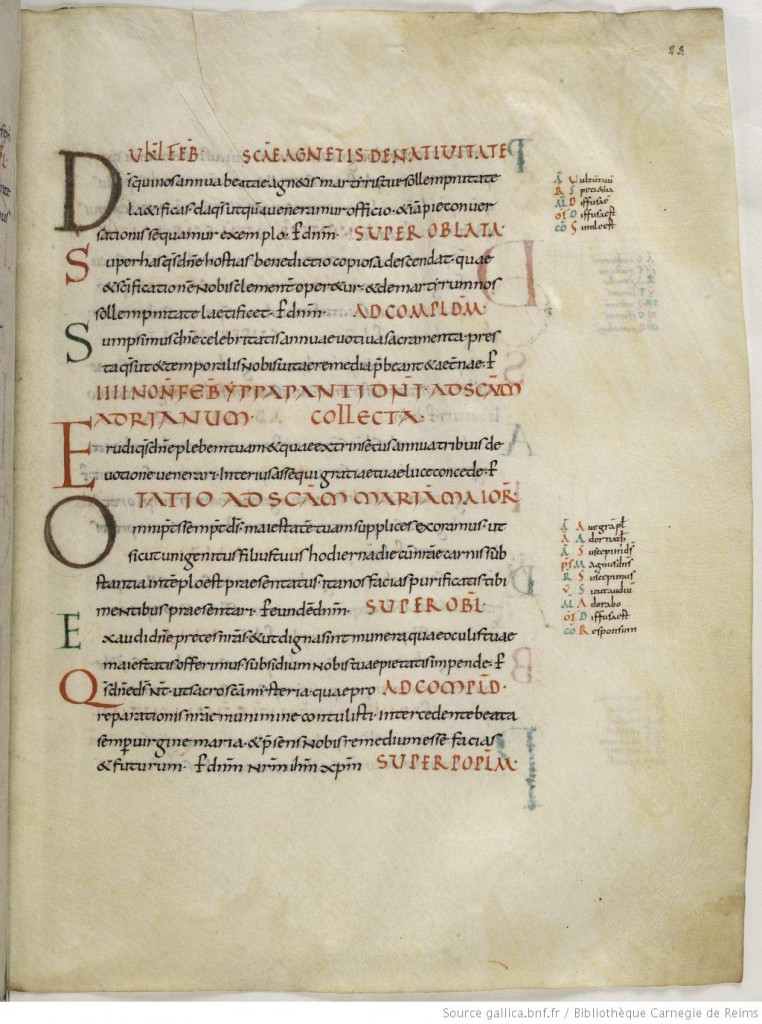 23
V KL FEB SCAE AGNETIS DE NATIVITATE
Ds qui nos annua beatae agn&is martiris tuae sollempnitate
la&ificas da qs ut quā veneramur officio &iā piae conver
sationis sequamur exemplo ꝑ dnm̄ SUPER OBLATA
Super has qs dn̄e hostias benedictio copiosa descendat quae
& scīficationē nobis clement̄ oper&ur & de martirum nos
sollempnitate laetificet ꝑ dnm̄ AD COMPLD̄M
Sumpsimus dn̄e celebritatis annuae votiva sacramenta pres
ta qs ut & temporalis nobis vitae remedia p̄beant & aet̄nae ꝑ
IIII NON̄ FEB YPPAPANTI DN̄I AD SCM̄
ADRIANUM COLLECTA
Erudi qs dn̄e plebem tuam & quae extrinsecus annua tribuis de
votione venerari interius assequi gratiae tuae luce concede ꝑ
STATIO AD SCAM̄ MARIAM̄ MAIOR̄
Omnip̄ts semp̄t ds maiestatē tuam supplices exoramus ut
sicut unigenitus filius tuus hodierna die cū nrāe carnis sub
stantia in tēplo est praesentatus ita nos facias purificatis tibi
mentibus praesentari ꝑ eundē dnm̄ SUPER OBL̄
Exaudi dn̄e preces nrās & ut digna sint munera quae oculis tuae
maiestatis offerimus subsidium nobis tuae pietatis impende ꝑ
Qs dn̄e ds nr̄ ut sacroscā misteria quae pro AD COMPLD̄
reparationis nrāe munimine contulisti intercedente beata
semp virgine maria & p̄sens nobis remedium esse facias
& futurum ꝑ dnm̄ nrm̄ ihm̄ xpm̄ SUPER POPLM̄
Ā Vultū tuū
R S
Diffusa ē
OF Diffusa est
CO Simile est
Ā Ave gra pl
Ā Adorna th
Ā Suscepimus ds
PS Magnus dns
R Suscepimus
V Sicut audiv
AL Adorabo
OF Diffusa est
CO Responsum
Source gallica.bnf.fr / Bibliothèque Carnegie de Reims